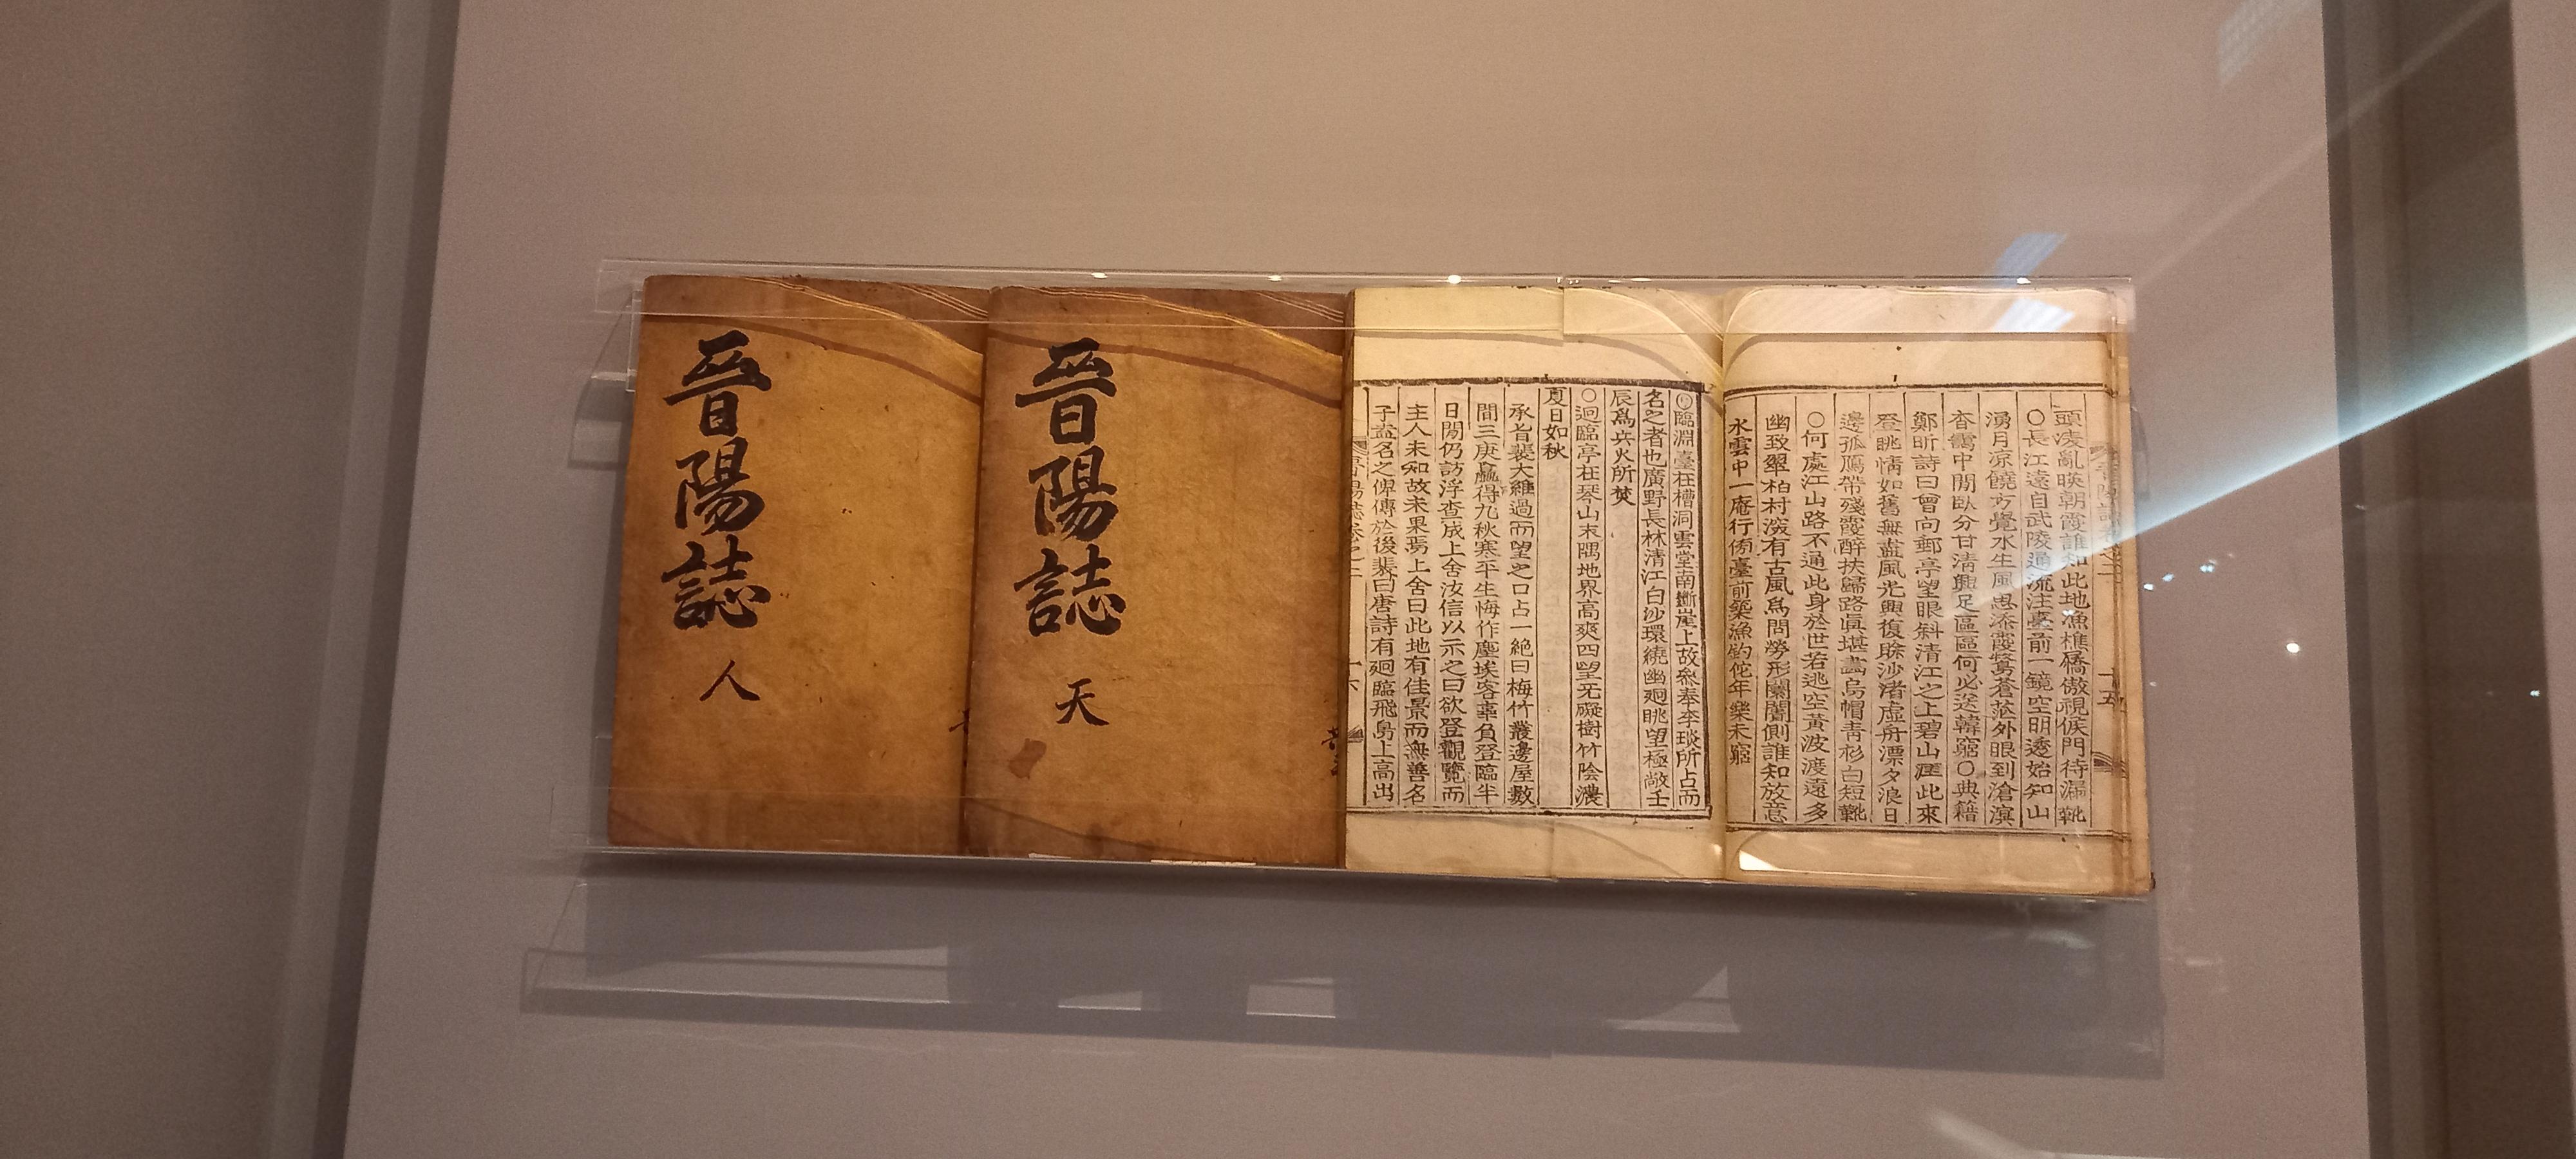 晉陽誌 人
晉陽誌 天
頭凌亂暎朝霞誰知此地漁樵屬傲視侯門待漏靴
○長江遠自武陵通流注臺前一鏡空明透始知山
湧月凉饒方覺水生風思添霞鶩蒼茫外眼到滄溟
杳靄中閒臥分甘清興足區區何必送韓窮○典籍
鄭昕詩曰曾向郵亭望眼斜清江之上碧山厓此來
登眺情如舊無盡風光興復賖沙渚虛舟漂夕浪日
邊孤鴈帶殘霞醉扶歸路眞堪畵烏帽靑衫白短靴
○何處江山路不通此身於世若逃空黃波渡遠多
幽致翠柏村深有古風爲問勞形闤闠側誰知放意
水雲中一庵行傍臺前築漁釣佗年樂未窮
臨淵臺在槽洞雲堂南斷崖上故叅奉李琰所占而
名之者也廣野長林清江白沙環繞幽廻眺望極敞壬
辰爲兵火所焚
○迥臨亭在琴山末隅地界高爽四望无礙樹竹陰濃
夏日如秋
承旨裴大維過而望之口占一絕曰梅竹叢邊屋數
間三庚贏得九秋寒平生悔作塵埃客辜負登臨半
日閒仍訪浮查成上舍汝信以示之曰欲登觀覽而
主人未知故未果焉上舍曰此地有佳景而無善名
子盍名之俾傳於後裴曰唐詩有迥臨飛鳥上高出